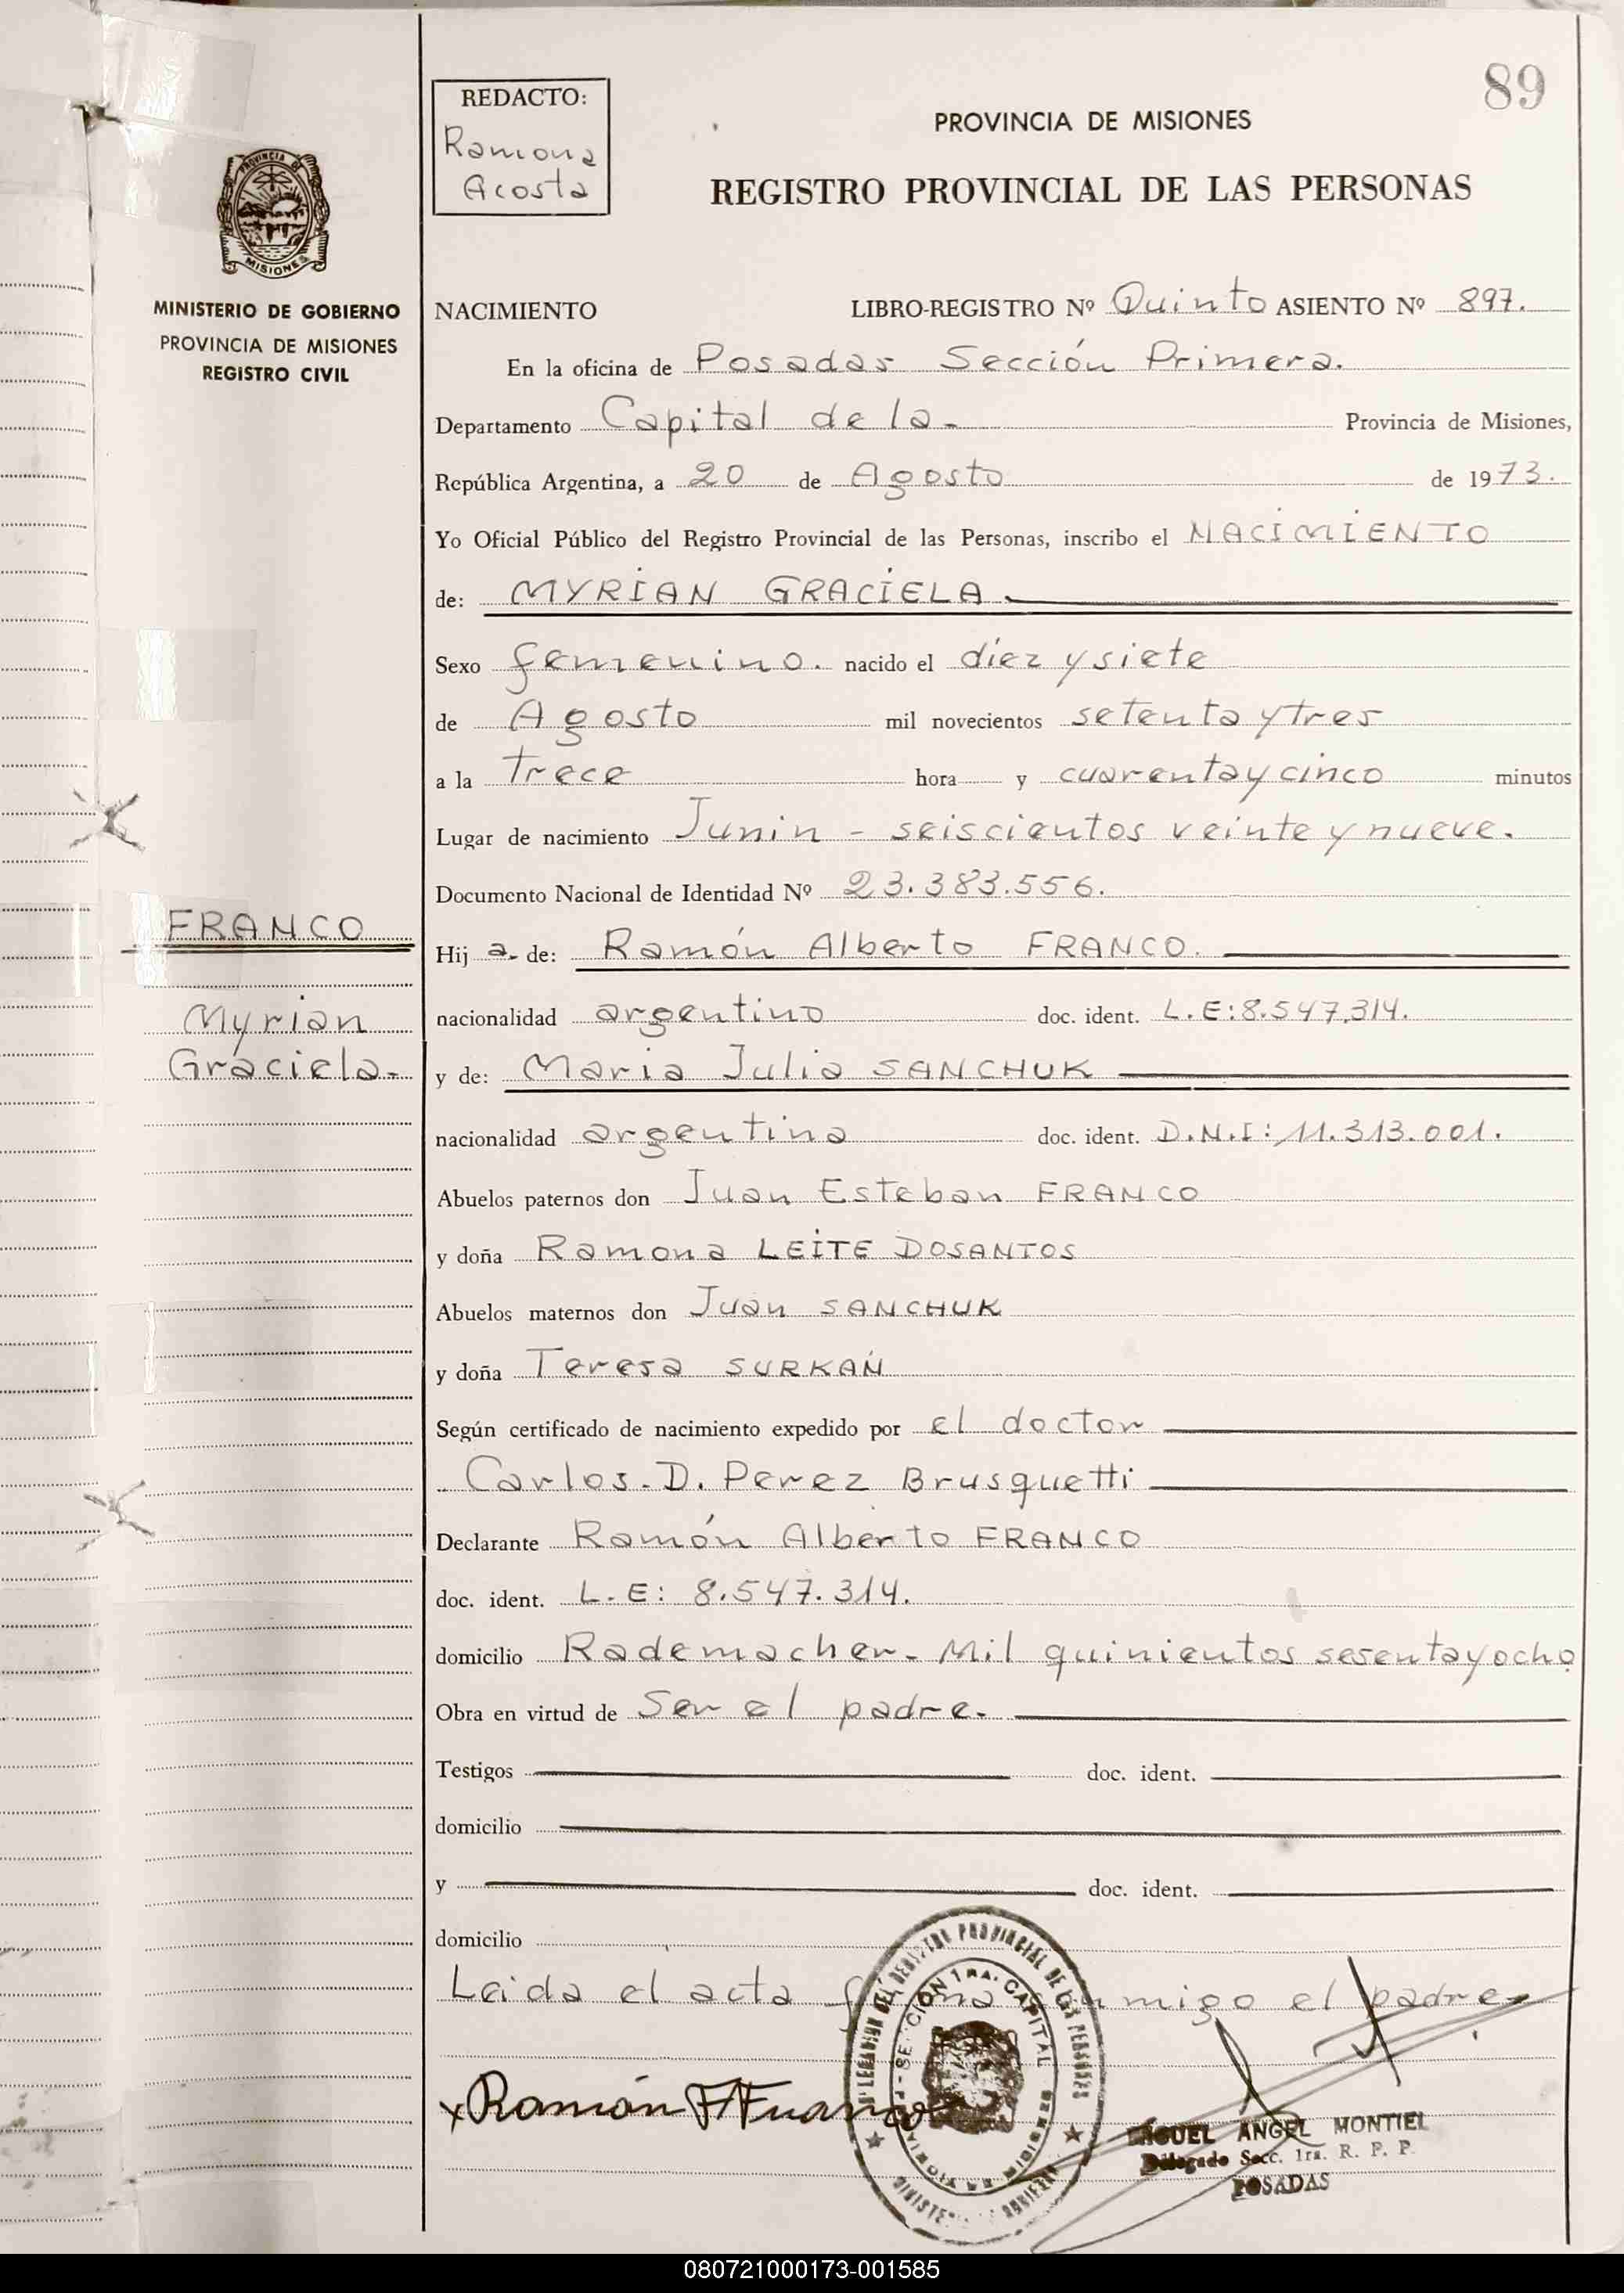 89
REDACTO:
Ramona
Acosta
PROVINCIA DE MISIONES
REGISTRO PROVINCIAL DE LAS PERSONAS
PROVINCIA DE
MISIONES
MINISTERIO DE GOBIERNO
PROVINCIA DE MISIONES
REGISTRO CIVIL
NACIMIENTO LIBRO-REGISTRO Nº Quinto ASIENTO Nº 897.
En la oficina de Posadas Sección Primera.
Departamento Capital de la - Provincia de Misiones,
República Argentina, a 20 de Agosto de 1973.
Yo Oficial Público del Registro Provincial de las Personas, inscribo el NACIMIENTO
de: MYRIAN GRACIELA.
Sexo femenino. nacido el diez y siete
de Agosto mil novecientos setenta y tres
a la Trece hora y cuarenta y cinco minutos
Lugar de nacimiento Junin - seiscientos veinte y nueve.
Documento Nacional de Identidad Nº 23.383.556.
FRANCO
Myrian
Graciela.-
Hij a- de: Ramón Alberto FRANCO.
nacionalidad argentino doc. ident. L.E:8.547.314.
y de: Maria Julia SANCHUK
nacionalidad argentina doc. ident. D.N.I: 11.313.001.
Abuelos paternos don Juan Esteban FRANCO
y doña Ramona LEITE DOSANTOS
Abuelos maternos don Juan SANCHUK
y doña Teresa SURKAN
Según certificado de nacimiento expedido por el doctor
Carlos.D. Perez Brusquetti
Declarante Ramón Alberto FRANCO
doc. ident. L.E: 8.547.314.
domicilio Rademacher- Mil quinientos sesenta y ocho
Obra en virtud de Ser el padre.-
Testigos doc. ident.
domicilio
y doc. ident.
domicilio
Leida el acta firma conmigo el padre-
DEL REGISTRO PROVINCIAL DE LAS PERSONAS
SECCION 1RA. CAPITAL
x Ramón A Franco
MIGUEL ANGEL MONTIEL
Delegado Secc. 1ra. R. P. P.
POSADAS
080721000173-001585